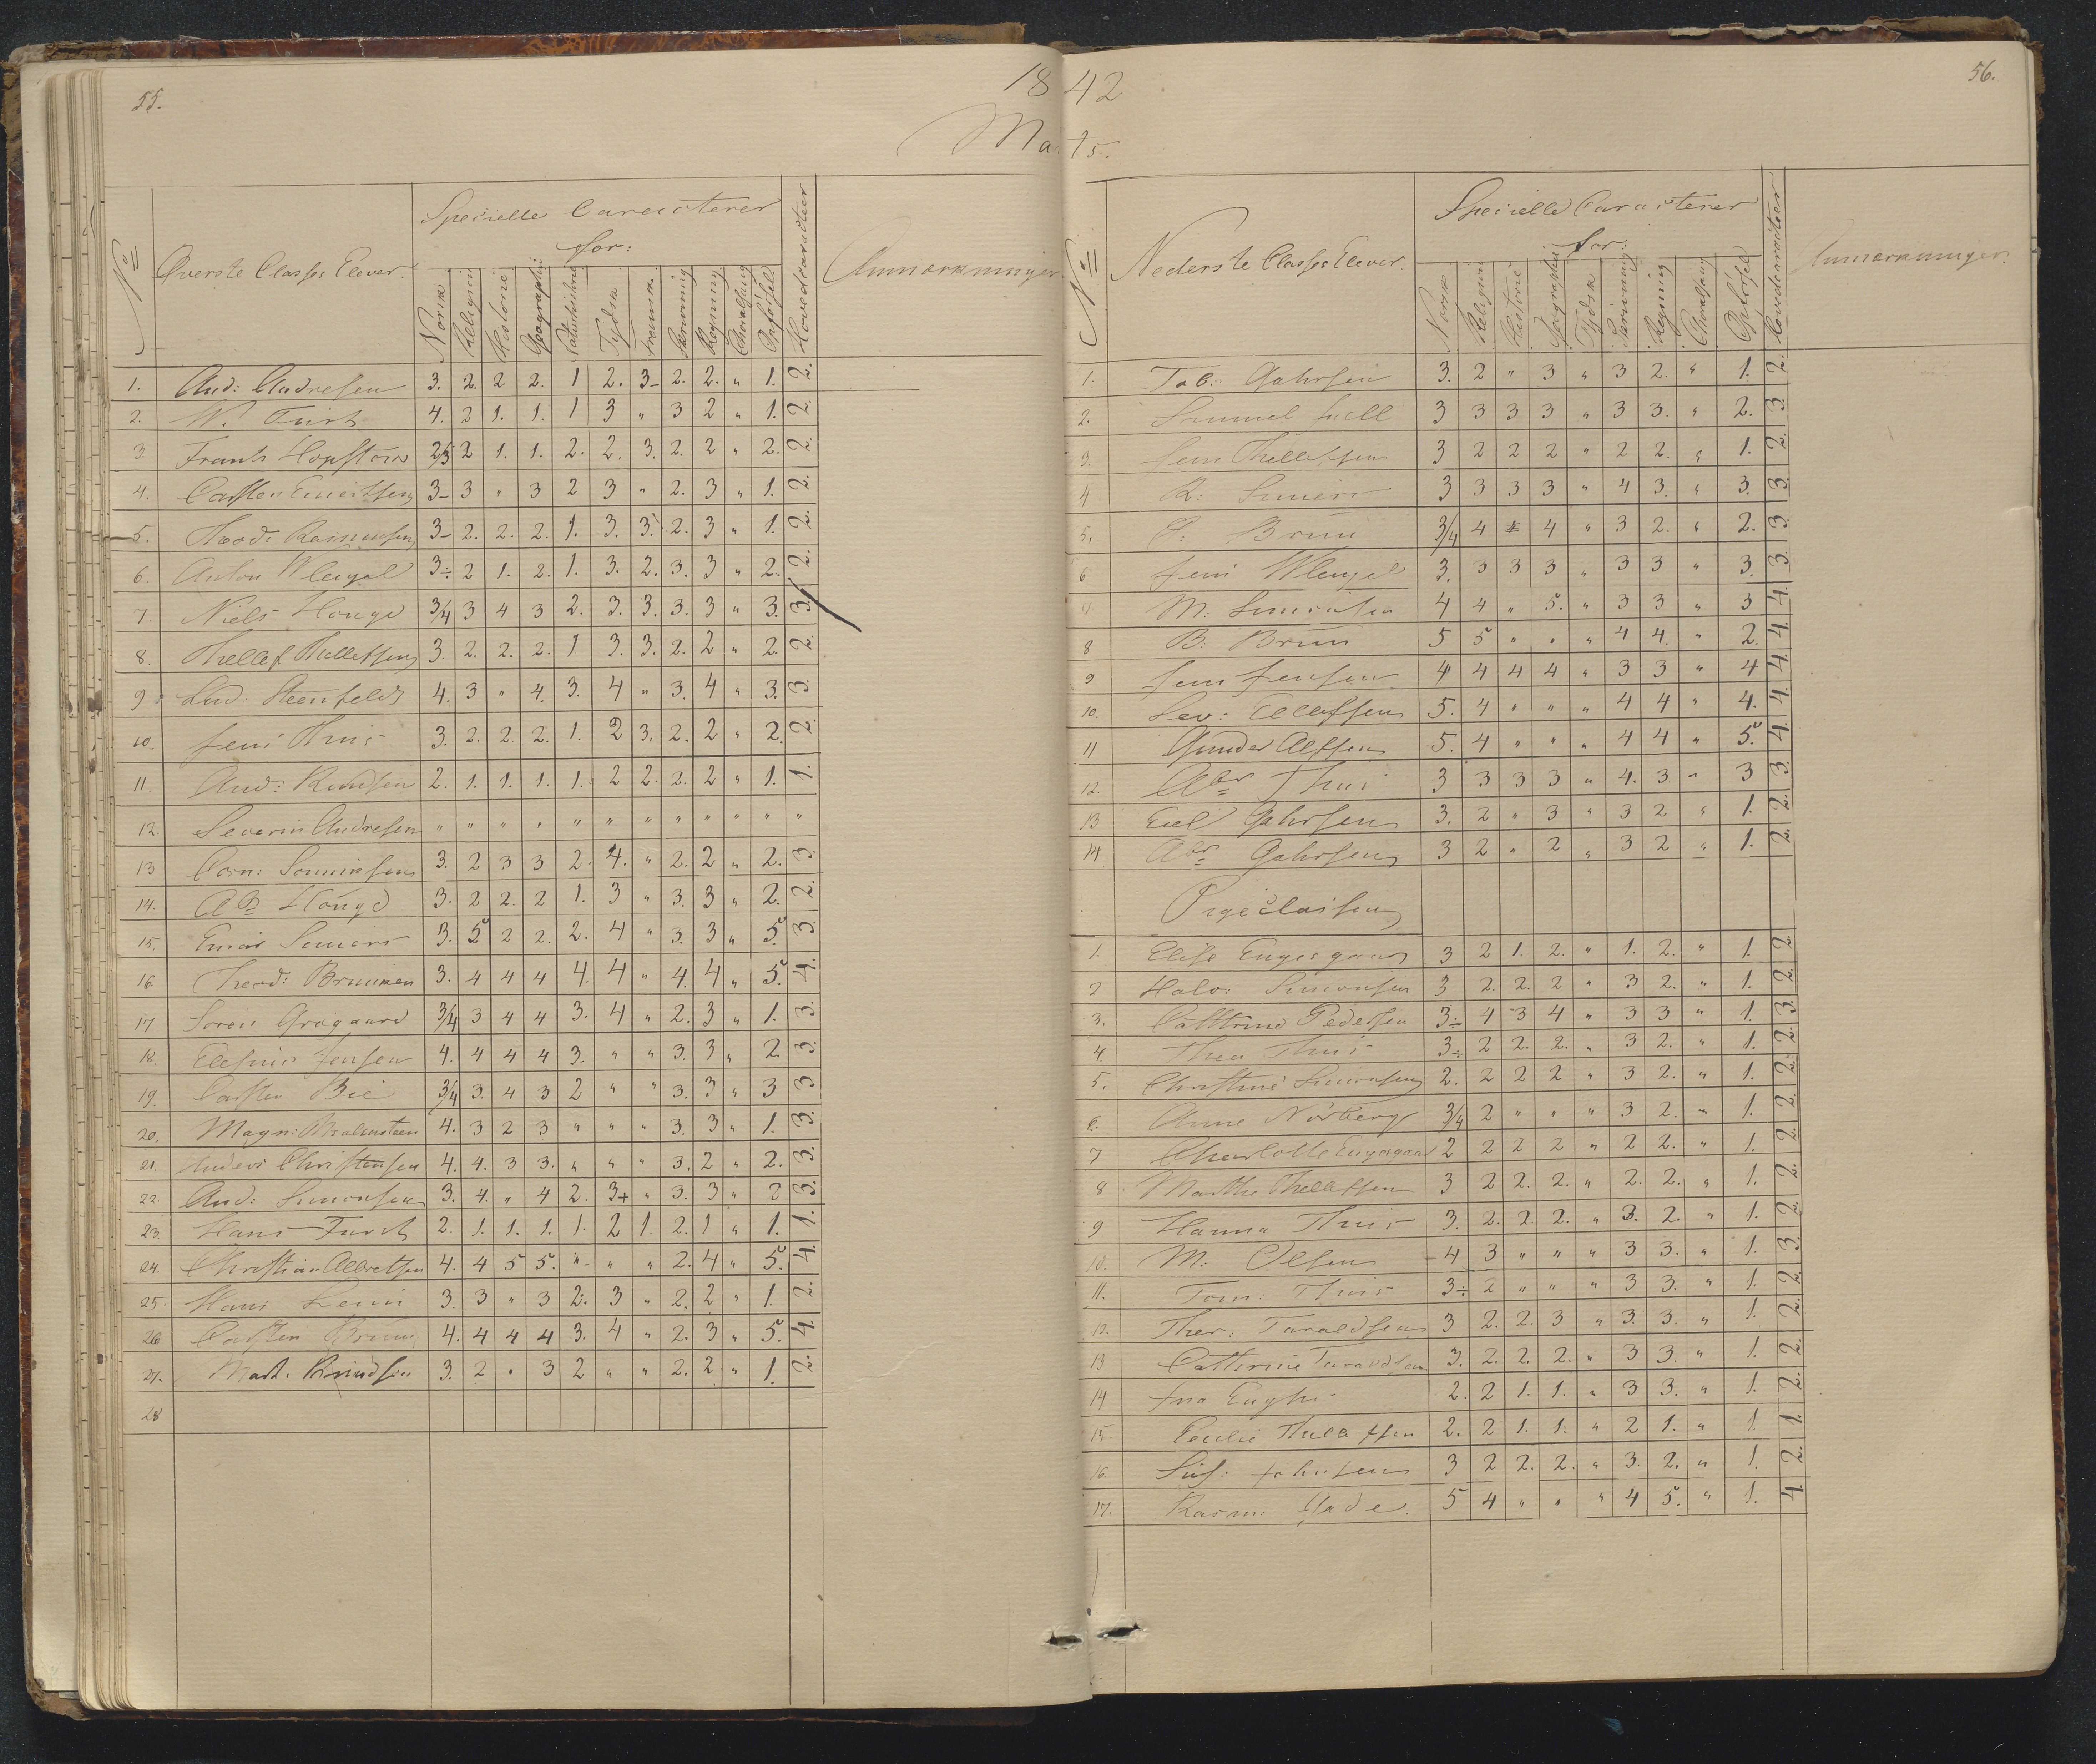 55.
18 42
Marts.
56.
No
Øverste Classes Elever.
Specielle Caracterer
for:
Norsk Religion Historie Geographi Naturhistorie Tydsk Fransk Skrivning Regning Choralsang Opførsel Hovedcaracteer
Anmærkninger
1. And: Andresen 3. 2. 2 2. 1 2. 3- 2. 2. " 1. 2.
2. N. Furst 4. 2 1. 1. 1 3 " 3 2 " 1. 2.
3. Frants Hopstock 2/3 2 1. 1. 2. 2. 3. 2. 2 " 2. 2.
4. Carsten 3- 3 " 3 2 3 " 2. 3 " 1. 2.
5. Theod: Rasmussen 3- 2. 2. 2. 1. 3. 3. 2. 3 " 1. 2.
6. Anton Wleugel 3÷ 2 1. 2. 1. 3. 2. 3. 3 " 2. 2.
7. Niels Houge 3/4 3 4 3 2. 3. 3. 3. 3 " 3. 3.
8. Thellef Thellefsen 3. 2. 2. 2. 1 3. 3. 2. 2 " 2. 2.
9. Lud: Steenfeldt 4. 3 " 4. 3. 4 " 3. 4 " 3. 3.
10. Jens Thiis 3. 2. 2. 2. 1. 2 3. 2. 2 " 2. 2.
11. And: Knudsen 2. 1. 1. 1. 1. 2 2. 2. 2 " 1. 1.
12. Severin Andresen " " " " " " " " " " " "
13 Corn: Simonsen 3. 2 3 3 2. 4. " 2. 2 " 2. 3.
14. Abr Houge 3. 2 2. 2 1. 3 " 3. 3 " 2. 2.
15. 3. 5 2 2. 2. 4 " 3. 3 " 5. 3.
16. Theod: 3. 4 4 4 4. 4 " 4. 4 " 5. 4.
17 Søren Grøgaard 3/4 3 4 4 3. 4 " 2. 3 " 1. 3.
18. Jensen 4. 4 4 4 3. " " 3. 3 " 2 3.
19. Carsten Bie 3/4 3. 4 3 2 " " 3. 3 " 3 3
20. Magn: Malmsteen 4. 3 2 3 " " " 3. 3 " 1. 3.
21. Anders Christensen 4. 4. 3 3. " " " 3. 2 " 2. 3.
22. And: Simonsen 3. 4. " 4 2. 3+ " 3. 3 " 2 3.
23. Hans Furst 2. 1. 1. 1. 1. 2 1. 2. 1 " 1. 1.
24. Christian Albretsen 4. 4 5 5. " " " 2. 4 " 5. 4.
25. Hans 3. 3 " 3 2. 3 " 2. 2 " 1. 2.
26 Carsten Bruun 4. 4 4 4 3. 4 " 2. 3 " 5. 4.
27. Mart. Knudsen 3. 2 " 3 2 " " 2. 2 " 1. 2.
28
No
Nederste Classes Elever.
Specielle Caracterer
for:
Norsk Religion Historie Geographie Tydsk Skrivning Regning Choralsang Opførsel Hovedcaracteer
Anmærkninger.
1. Tob: Gahrsen 3. 2 " 3 " 3 2. " 1. 2.
2. Samuel 3 3 3 3 " 3 3. " 2. 3.
3. Jens Thellefsen 3 2 2 2 " 2 2. " 1. 2.
4 R: 3 3 3 3 " 4 3. " 3. 3.
5. Bruun 3/4 4 4 " 3 2. " 2. 3.
6 Jens Wleugel 3. 3 3 3 " 3 3 " 3. 3.
7. M. Simonsen 4 4 " 5. " 3 3 " 3 4.
8 B: Bruun 5 5 " " " 4 4. " 2. 4.
9 Jens Jensen 4 4 4 4 " 3 3 " 4 4.
10. Sev: Ellefsen 5. 4 " " " 4 4 " 4. 4.
11 Gunder 5. 4 " " " 4 4 " 5. 4.
12. Abr Thiis 3 3 3 3 " 4. 3. " 3 3.
13 Gahrsen 3. 2 " 3 " 3 2 " 1. 2.
14. Abr Gahrsen 3 2 " 2 " 3 2 " 1. 2.
Pigeclassen
1. Elise Engesgaard 3 2 1. 2. " 1. 2. " 1. 2
2 Halv: Simonsen 3 2. 2. 2 " 3 2. " 1. 2.
3. Cathrine Pedersen 3÷ 4 3 4 " 3 3 " 1. 3.
4. Thea Thiis 3÷ 2 2. 2. " 3 2. " 1. 2.
5. Christine Simonsen 2. 2 2 2 " 3 2. " 1. 2.
6. Anne Nørberg 3/4 2 " " " 3 2. " 1. 2.
7 Charlotte Engesgaard 2 2 2 2 " 2 2. " 1. 2.
8 Marthe Thellefsen 3 2 2. 2. " 2. 2. " 1. 2.
9 Hanna Thiis 3. 2. 2. 2. " 3. 2. " 1. 2.
10. M: Olsen 4 3 " " " 3 3. " 1. 3.
11. Tom: Thiis 3÷ 2 " " " 3 3. " 1. 2.
12. Ther: Taraldsen 3 2. 2. 3 " 3. 3. " 1. 2.
13 Cathrine Taraldsen 3. 2. 2. 2. " 3 3. " 1. 2.
14 2. 2 1. 1. " 3 3. " 1. 2.
15. Thellefsen 2. 2 1. 1. " 2 1. " 1. 1.
16. 3 2 2. 2. " 3. 2. " 1. 2.
17. Rasm: Gade. 5 4 " " " 4 5. " 1. 4.